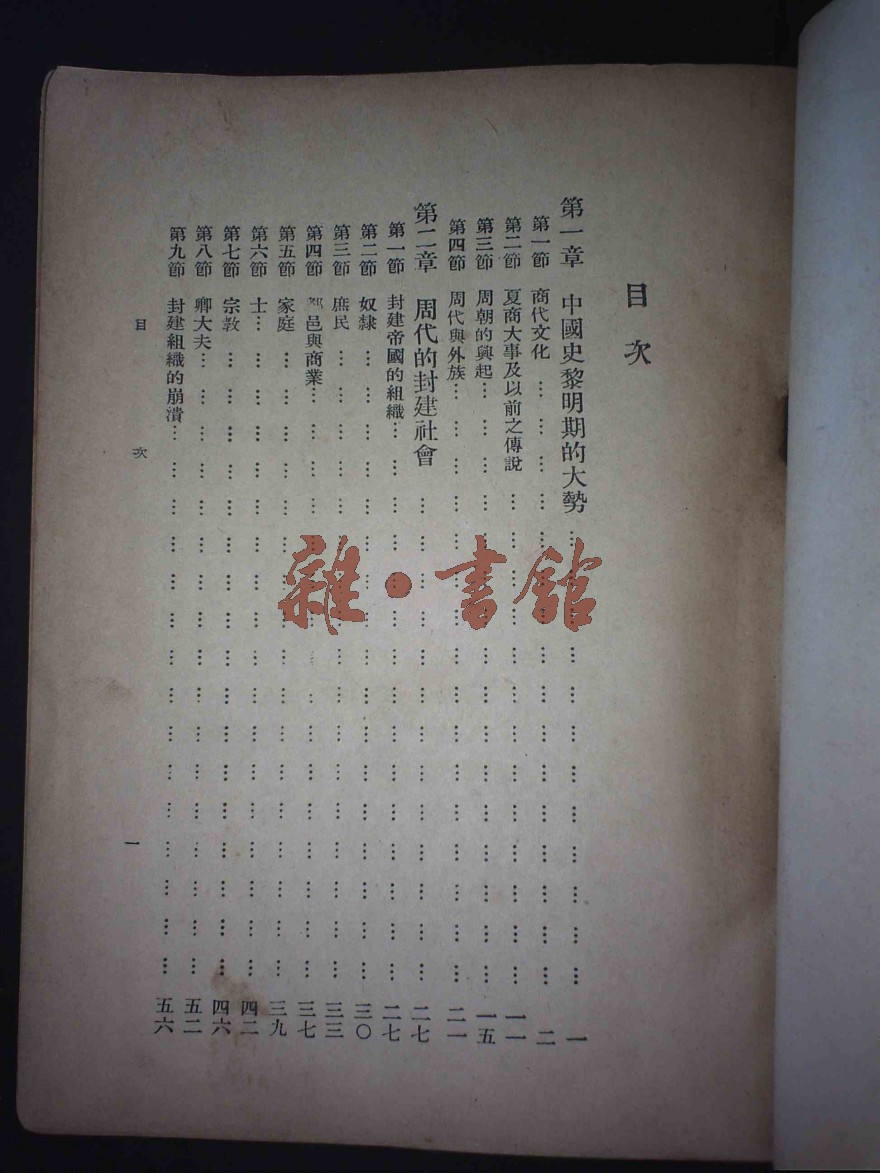 目次
第一章 中國史黎明期的大勢………………一
第一節 商代文化………………二
第二節 夏商大事及以前之傳說………………一一
第三節 周朝的興起………………一五
第四節 周代與外族………………二一
第二章 周代的封建社會………………二七
第一節 封建帝國的組織………………二七
第二節 奴隸………………三〇
第三節 庶民………………三三
第四節 邑與商業………………三七
第五節 家庭………………三九
第六節 士………………四二
第七節 宗教………………四六
第八節 卿大夫………………五二
第九節 封建組織的崩潰………………五六
目次
一
雜·書館